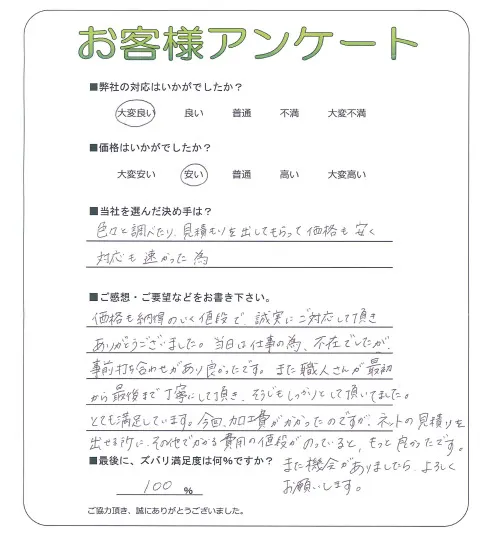 お客様アンケート
■弊社の対応はいかがでしたか?
大変良い 良い 普通 不満 大変不満
■価格はいかがでしたか?
大変安い 安い 普通 高い 大変高い
■当社を選んだ決め手は?
色々と調べたり、見積もりを出してもらって価格も安く
対応も速かった為
■ご感想・ご要望などをお書き下さい。
価格も納得のいく値段で、誠実にご対応して頂き
ありがとうございました。当日は仕事の為、不在でしたが、
事前打ち合わせがあり良かったです。また職人さんが最初
から最後まで丁寧にして頂き、そうじもしっかりとして頂いてました。
とても満足しています。今回、加工費がかかったのですが、ネットの見積りを
出せる所に、その他でかかる費用の値段がのっていると、もっと良かったです。
■最後に、ズバリ満足度は何%ですか?
また機会がありましたら、よろしく
お願いします。
100 %
ご協力頂き、誠にありがとうございました。